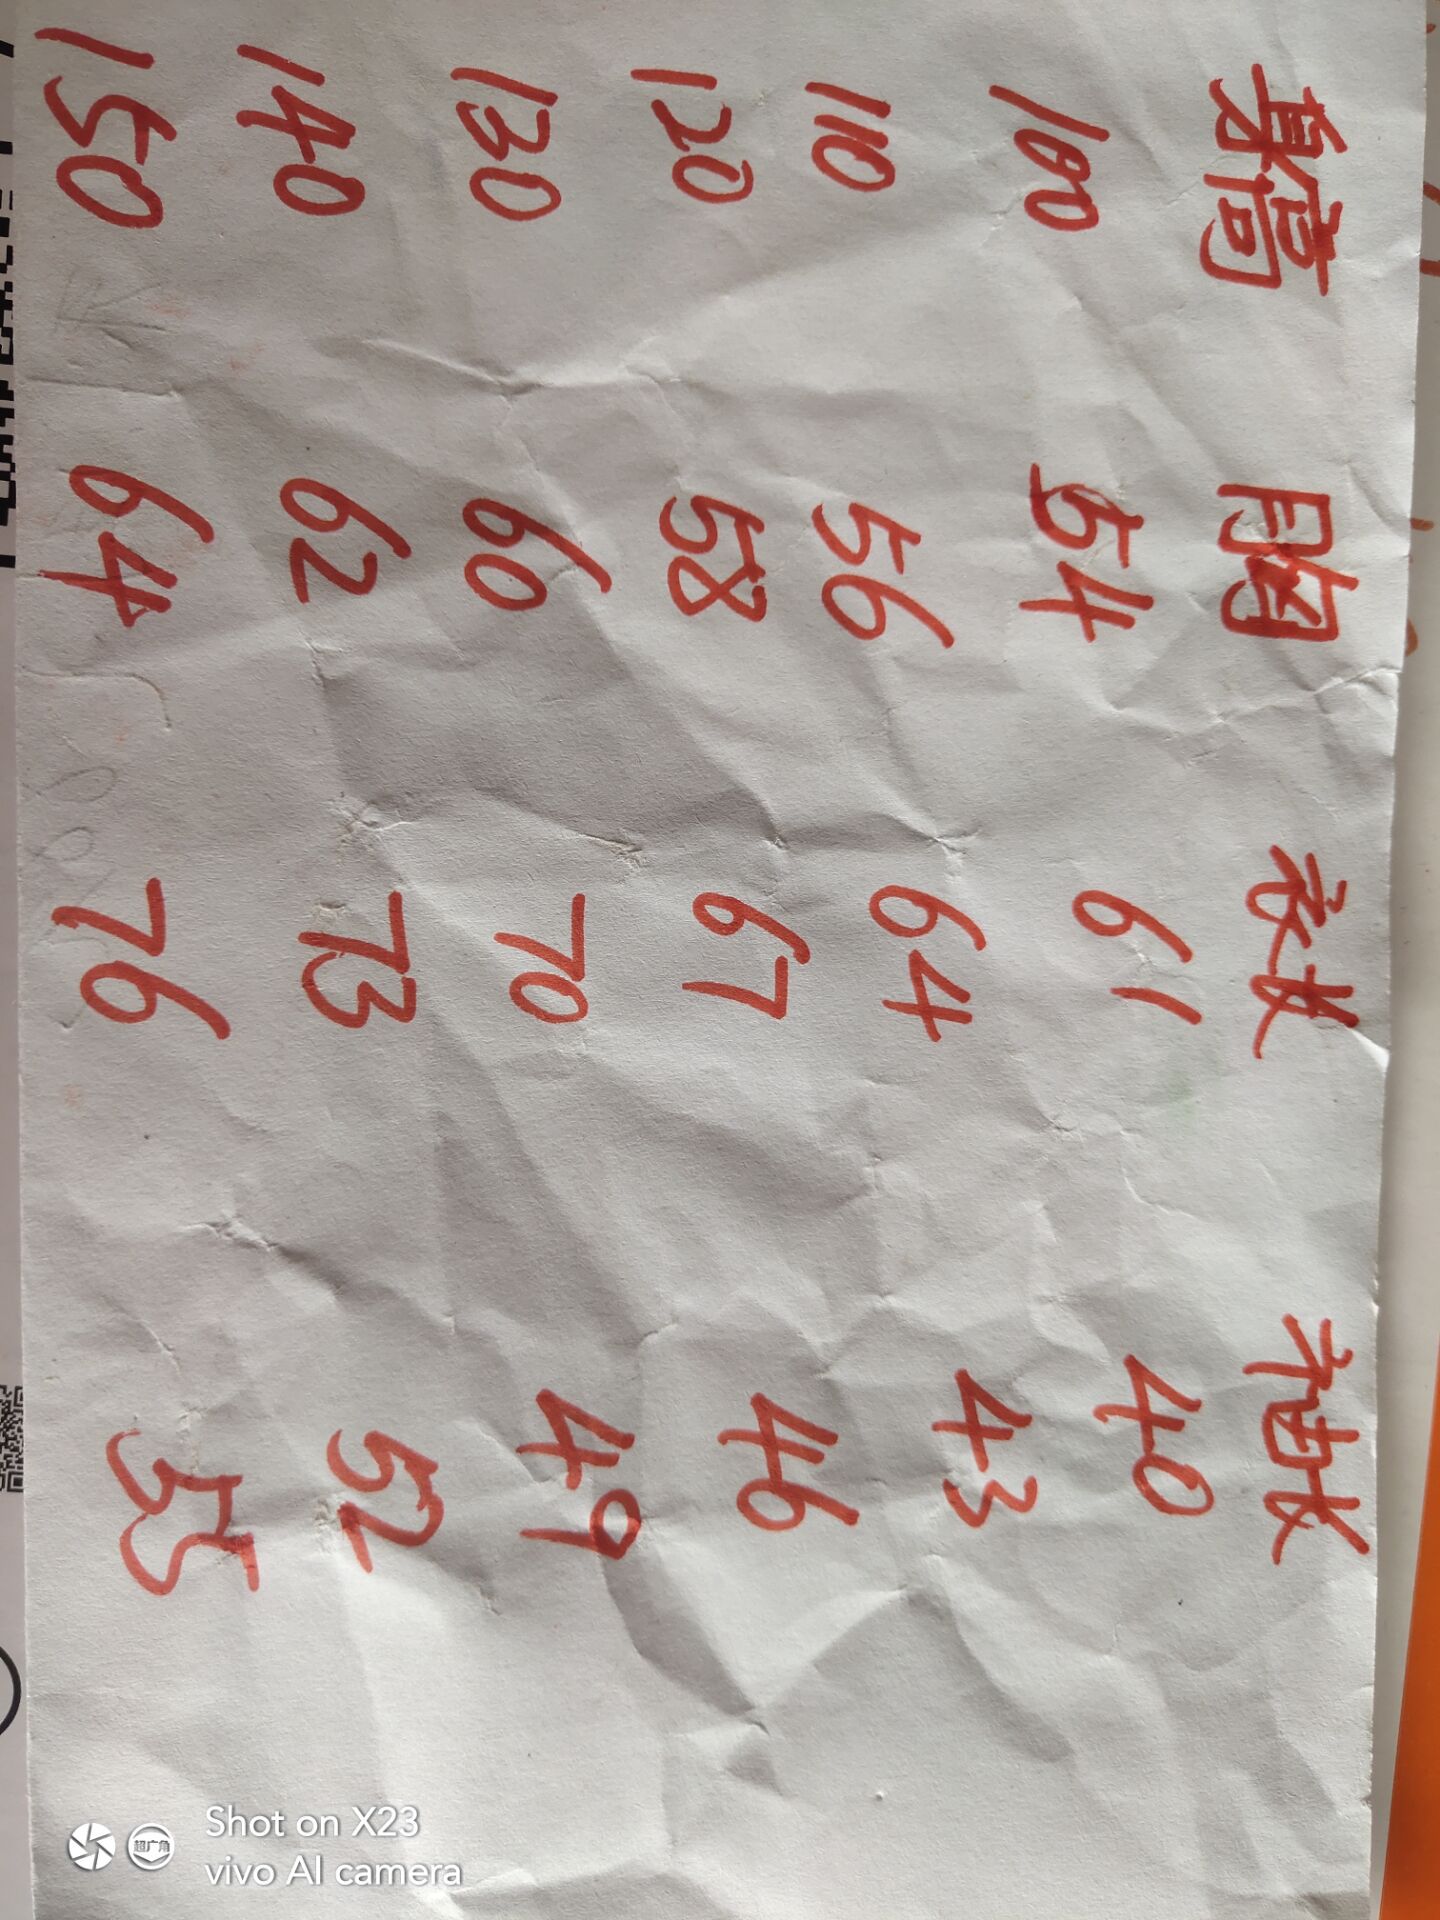 身高 胸 衣长 袖长
100 54 61 40
110 56 64 43
120 58 67 46
130 60 70 49
140 62 73 52
150 64 76 55
Shot on X23
vivo AI camera
超广角